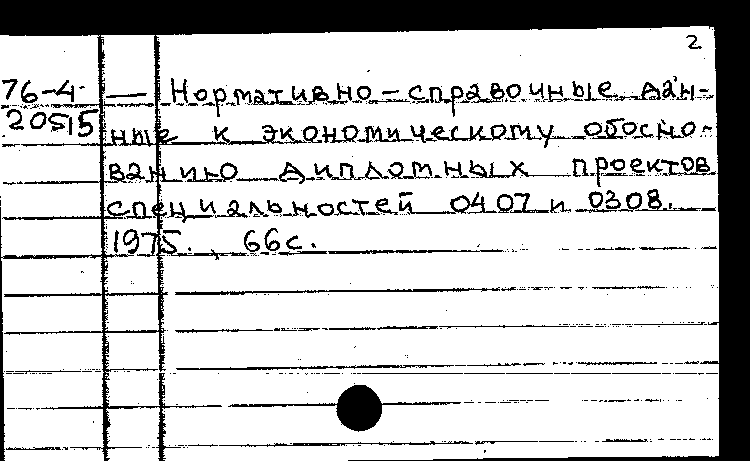 2
76-4 — Нормативно-справочные дан-
20515 ные к экономическому обосно-
ванию дипломных проектов
специальностей 0407 и 0308.
1975., 66с.